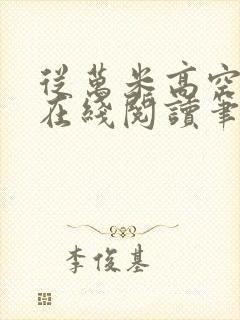 從萬米高空
在綫閱讀筆
李俊基